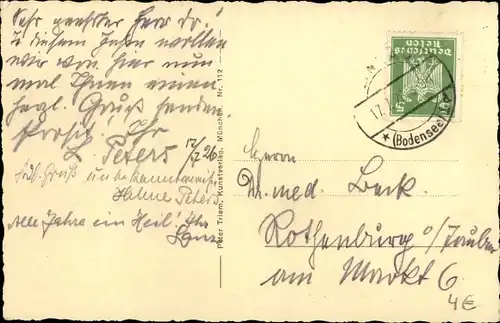 Sehr geehrter Herr Dr.!
In diesem Jahre wollen
wir von hier nun
mal Ihnen einen
herzl. Gruß senden.
Prosit! Ihr
L. Peters 17/7 26
Frdl. Gruß unbekannterweise
Helene Peters
Alle Jahre ein Heil! Ihr
Peter Triem, Kunstverlag, München. Nr. 112
Deutsches
Reich
5
17.
(Bodensee)
Herrn
Dr. med. Beck.
Rothenburg o/Tauber
am Markt 6
4€